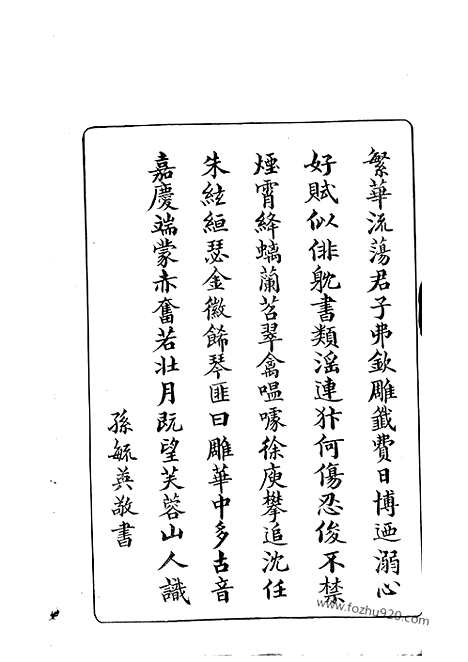 繁華流蕩君子弗欽雕籤費日博迺溺心
好賦似俳躭書類淫連犿何傷忍俊不禁
煙霄絳螭蘭苕翠禽嗢噱徐庾攀追沈任
朱絃絙瑟金徽餙琴匪曰雕華中多古音
嘉慶端蒙赤奮若壯月既望芙蓉山人識
孫毓英敬書
www.fozhu920.com